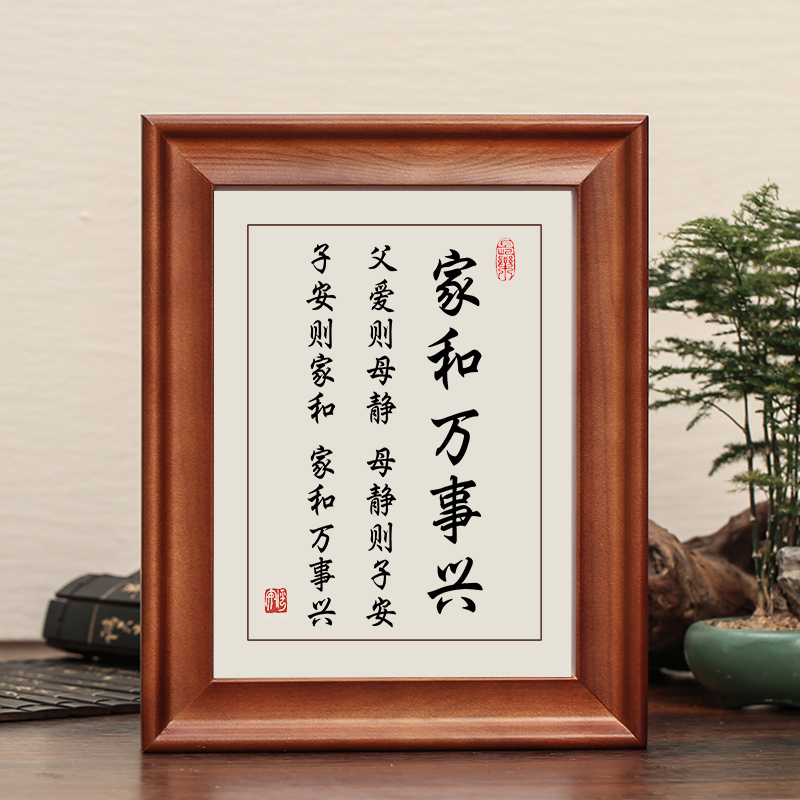 家和万事兴
父爱则母静 母静则子安
子安则家和 家和万事兴